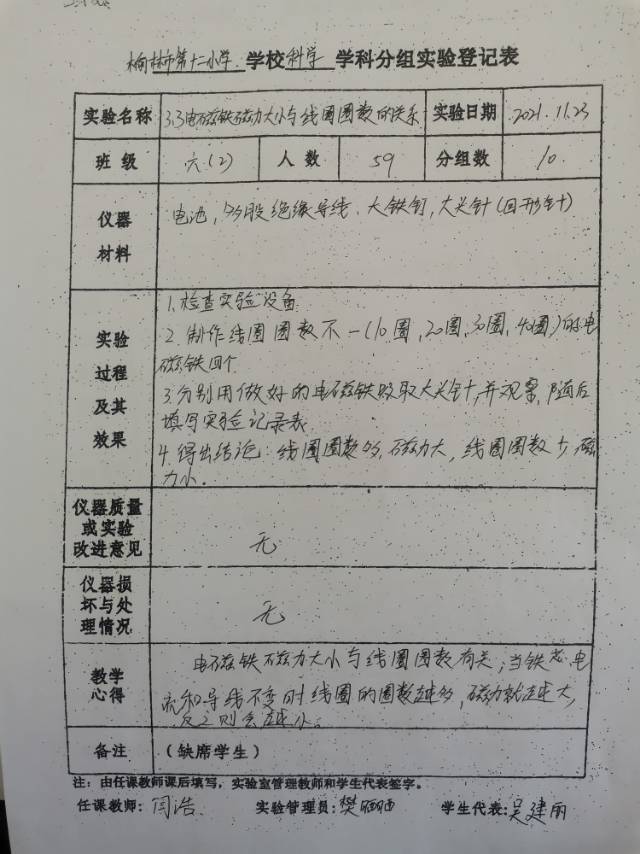 榆林市第十二小学 学校 科学 学科分组实验登记表
实验名称 3.3电磁铁磁力大小与线圈圈数的关系 实验日期 2021.11.23
班级 六(2) 人数 59 分组数 10
仪器材料 电池,多股绝缘导线.大铁钉,大头针(回形针)
实验过程及其效果
1.检查实验设备
2.制作线圈圈数不一(10圈,20圈,30圈,40圈)的电
磁铁四个
3.分别用做好的电磁铁吸取大头针,并观察,随后
填写实验记录表
4.得出结论:线圈圈数多,磁力大,线圈圈数少,磁
力小.
仪器质量或实验改进意见 无
仪器损坏与处理情况 无
教学心得
电磁铁磁力大小与线圈圈数有关;当铁芯.电
流和导线不变时线圈的圈数越多,磁力就越大,
反之则会越小。
备注 (缺席学生)
注:由任课教师课后填写,实验室管理教师和学生代表签字。
任课教师:闫浩 实验管理员:樊 学生代表:吴建丽